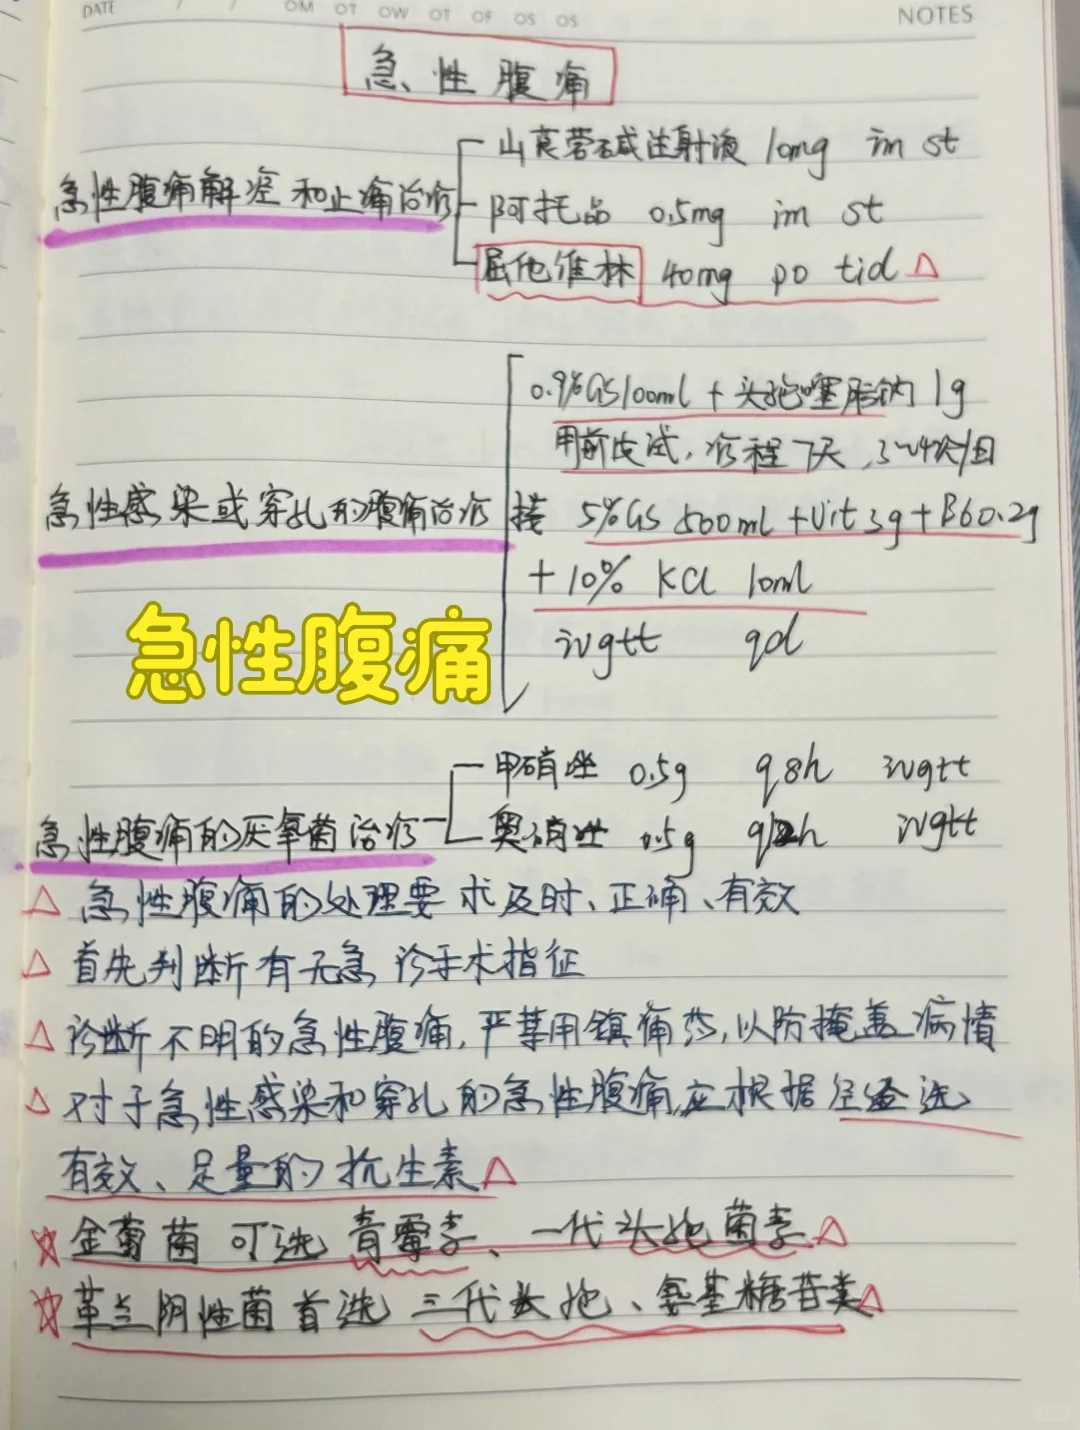 DATE / / OM OT OW OT OF OS OS
NOTES
急性腹痛
急性腹痛解痉和止痛治疗
山莨菪碱注射液 10mg im st
阿托品 0.5mg im st
屈他维林 40mg po tid △
急性感染或穿孔的腹痛治疗
0.9%GS100ml + 头孢噻肟钠 1g
用前皮试,疗程7天,3~4次/日
接 5%GS 500ml +Vit 3g + B6 0.2g
+ 10% KCl 10ml
ivgtt qd
急性腹痛
急性腹痛的厌氧菌治疗
甲硝唑 0.5g q8h ivgtt
奥硝唑 0.5g q12h ivgtt
△ 急性腹痛的处理要求及时、正确、有效
△ 首先判断有无急诊手术指征
△ 诊断不明的急性腹痛,严禁用镇痛药,以防掩盖病情
△ 对于急性感染和穿孔的急性腹痛,应根据经验选
有效、足量的抗生素△
☆ 金葡菌可选青霉素、一代头孢菌素△
☆ 革兰阴性菌首选三代头孢、氨基糖苷类△